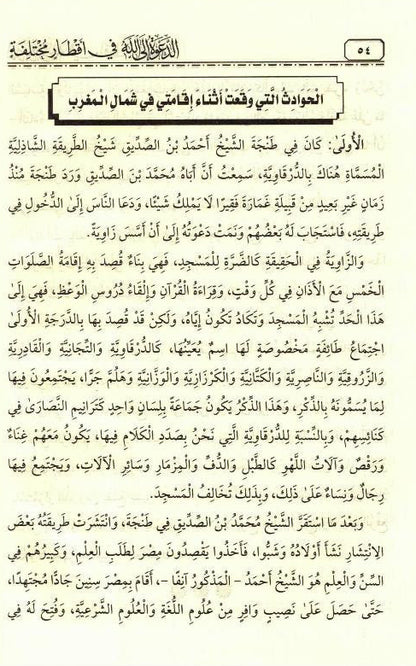 ٥٤
الدَّعْوَةُ إِلَى اللهِ فِي أَقْطَارٍ مُخْتَلِفَةٍ
الْحَوَادِثُ الَّتِي وَقَعَتْ أَثْنَاءَ إِقَامَتِي فِي شَمَالِ الْمَغْرِبِ
الْأُولَىٰ: كَانَ فِي طَنْجَةَ الشَّيْخُ أَحْمَدُ بْنُ الصِّدِّيقِ شَيْخُ الطَّرِيقَةِ الشَّاذِلِيَّةِ
الْمُسَمَّاةِ هُنَاكَ بِالدَّرْقَاوِيَّةِ، سَمِعْتُ أَنَّ أَبَاهُ مُحَمَّدَ بْنَ الصِّدِّيقِ وَرَدَ طَنْجَةَ مُنْذُ
زَمَانٍ غَيْرِ بَعِيدٍ مِنْ قَبِيلَةِ غُمَارَةَ فَقِيرًا لَا يَمْلِكُ شَيْئًا، وَدَعَا النَّاسَ إِلَىٰ الدُّخُولِ فِي
طَرِيقَتِهِ، فَاسْتَجَابَ لَهُ بَعْضُهُمْ وَنَمَتْ دَعْوَتُهُ إِلَىٰ أَنْ أَسَّسَ زَاوِيَةً.
وَالزَّاوِيَةُ فِي الْحَقِيقَةِ كَالضَّرَّةِ لِلْمَسْجِدِ، فَهِيَ بِنَاءٌ قُصِدَ بِهِ إِقَامَةُ الصَّلَوَاتِ
الْخَمْسِ مَعَ الْأَذَانِ فِي كُلِّ وَقْتٍ، وَقِرَاءَةُ الْقُرْآنِ وَإِلْقَاءُ دُرُوسِ الْوَعْظِ، فَهِيَ إِلَىٰ
هَذَا الْحَدِّ تُشْبِهُ الْمَسْجِدَ وَتَكَادُ تَكُونُ إِيَّاهُ، وَلَكِنْ قَدْ قُصِدَ بِهَا بِالدَّرَجَةِ الْأُولَىٰ
اجْتِمَاعُ طَائِفَةٍ مَخْصُوصَةٍ لَهَا اسْمٌ يُعَيِّنُهَا، كَالدَّرْقَاوِيَّةِ وَالتِّجَانِيَّةِ وَالْقَادِرِيَّةِ
وَالزَّرُّوقِيَّةِ وَالنَّاصِرِيَّةِ وَالْكَتَّانِيَّةِ وَالْكَرْزَازِيَّةِ وَالْوَزَّانِيَّةِ وَهَلُمَّ جَرًّا، يَجْتَمِعُونَ فِيهَا
لِمَا يُسَمُّونَهُ بِالذِّكْرِ، وَهَذَا الذِّكْرُ يَكُونُ جَمَاعَةً بِلِسَانٍ وَاحِدٍ كَتَرَانِيمِ النَّصَارَىٰ فِي
كَنَائِسِهِمْ، وَبِالنِّسْبَةِ لِلدَّرْقَاوِيَّةِ الَّتِي نَحْنُ بِصَدَدِ الْكَلَامِ فِيهَا، يَكُونُ مَعَهُمْ غِنَاءٌ
وَرَقْصٌ وَآلَاتُ اللَّهْوِ كَالطَّبْلِ وَالدُّفِّ وَالْمِزْمَارِ وَسَائِرِ الْآلَاتِ، وَيَجْتَمِعُ فِيهَا
رِجَالٌ وَنِسَاءٌ عَلَىٰ ذَلِكَ، وَبِذَلِكَ تُخَالِفُ الْمَسْجِدَ.
وَبَعْدَ مَا اسْتَقَرَّ الشَّيْخُ مُحَمَّدُ بْنُ الصِّدِّيقِ فِي طَنْجَةَ، وَانْتَشَرَتْ طَرِيقَتُهُ بَعْضَ
الِانْتِشَارِ نَشَأَ أَوْلَادُهُ وَشَبُّوا، فَأَخَذُوا يَقْصِدُونَ مِصْرَ لِطَلَبِ الْعِلْمِ، وَكَبِيرُهُمْ فِي
السِّنِّ وَالْعِلْمِ هُوَ الشَّيْخُ أَحْمَدُ - الْمَذْكُورُ آنِفًا -، أَقَامَ بِمِصْرَ سِنِينَ جَادًّا مُجْتَهِدًا،
حَتَّىٰ حَصَلَ عَلَىٰ نَصِيبٍ وَافِرٍ مِنْ عُلُومِ اللُّغَةِ وَالْعُلُومِ الشَّرْعِيَّةِ، وَفُتِحَ لَهُ فِي